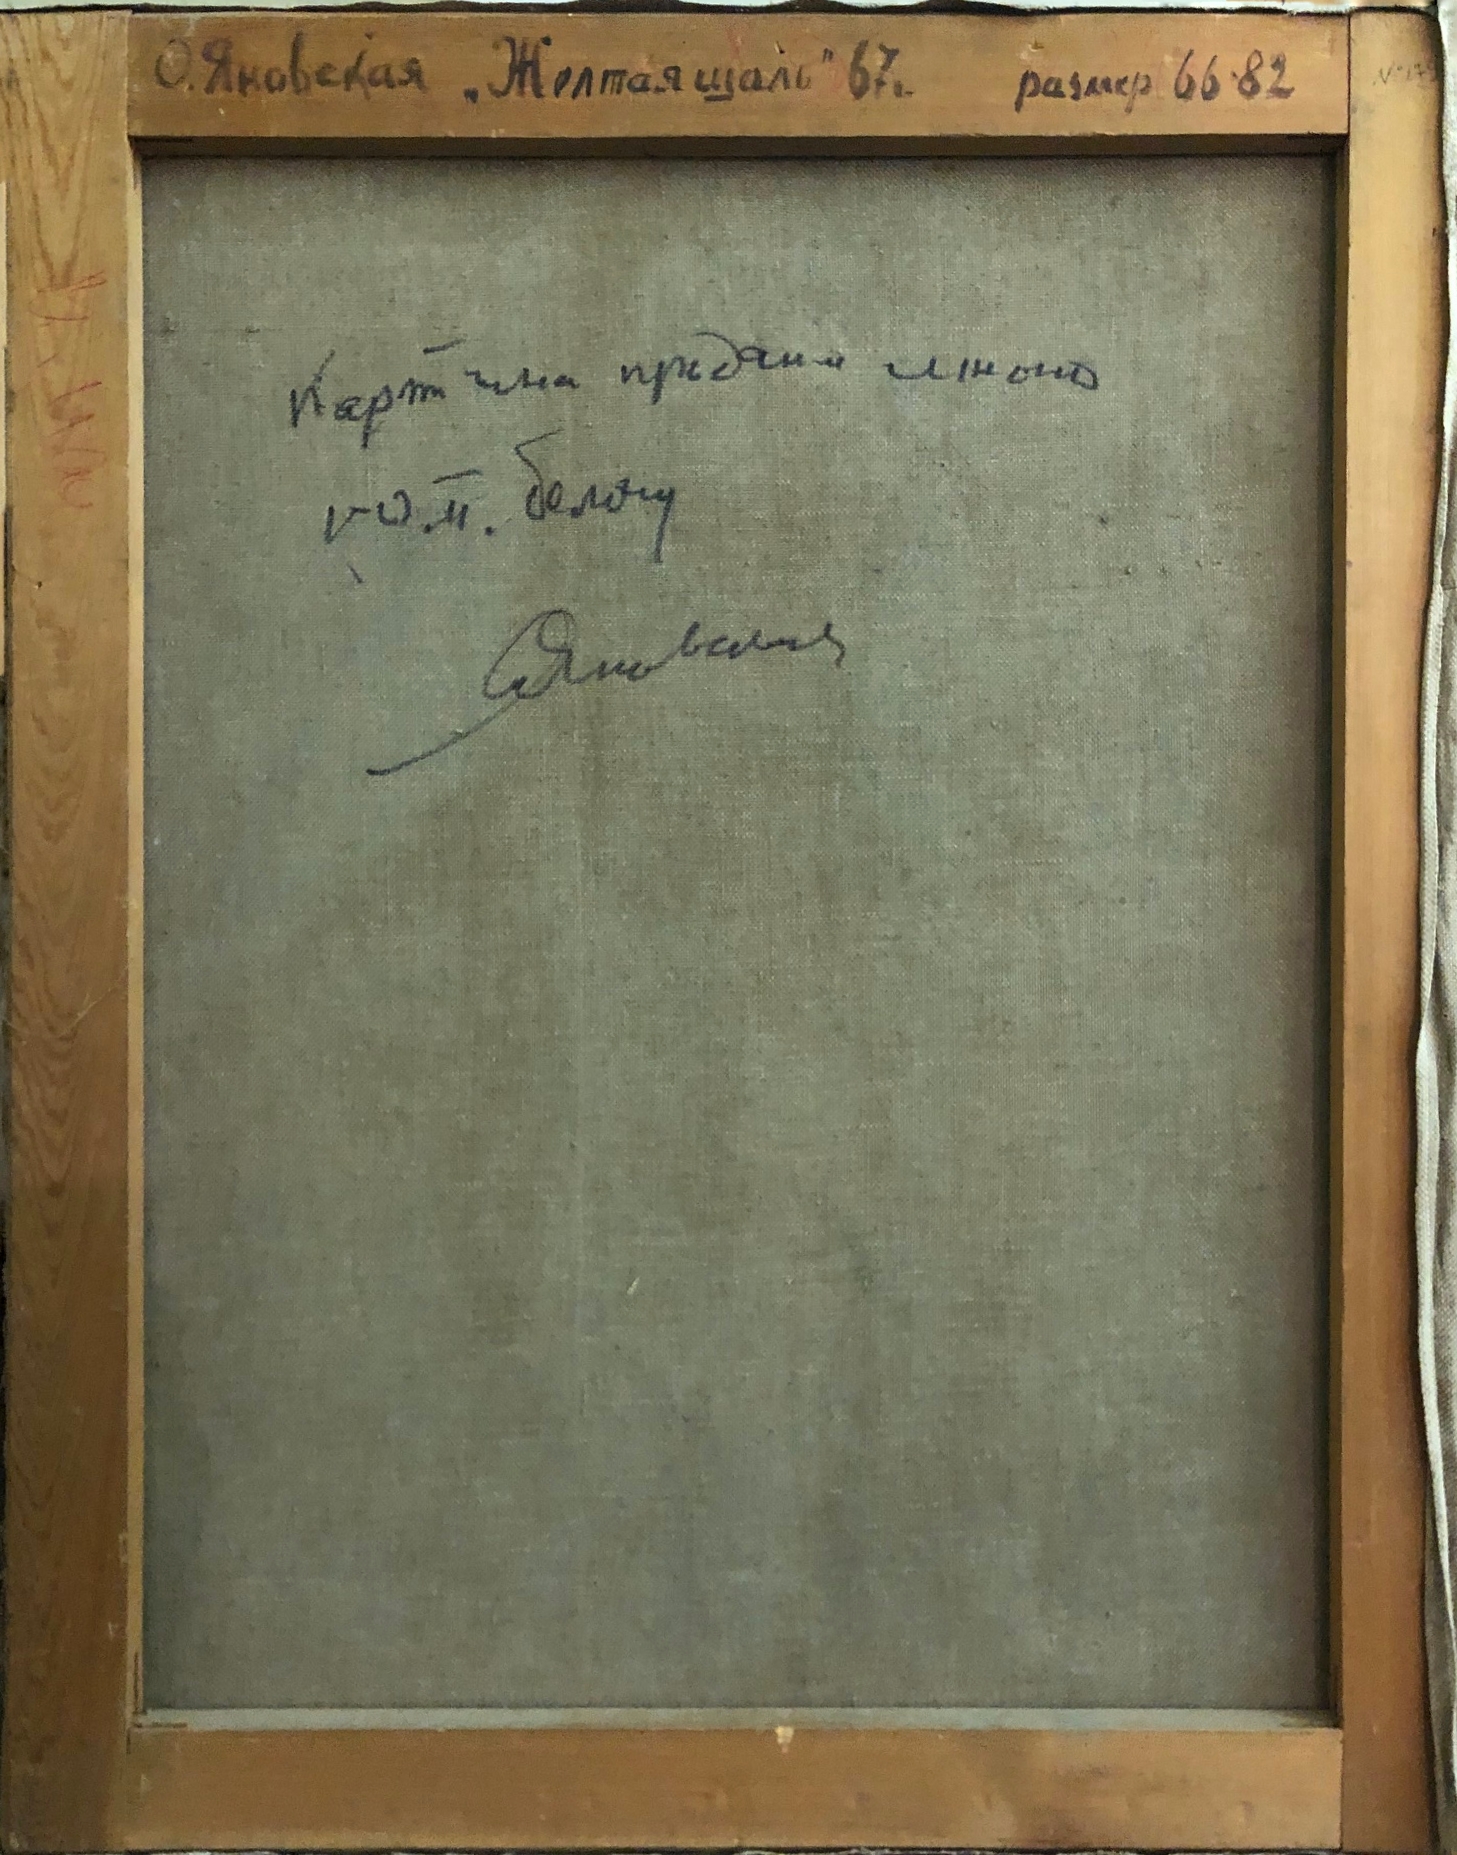 О. Яновская „Жолтая шаль" 67г. размер 66·82
Картина продана мною
Белову
ОЯновская